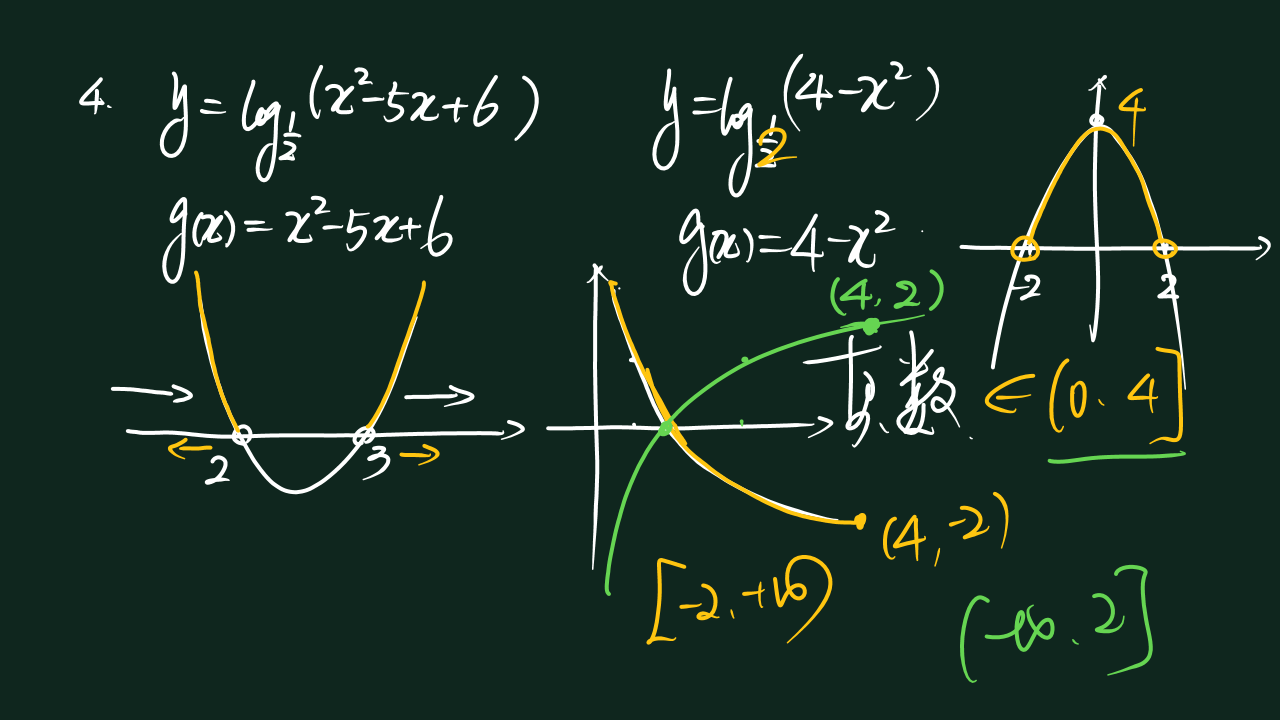 4. y = log_{1/2}(x²-5x+6)
g(x) = x²-5x+6
2 3
y = log_{2}(4-x²)
g(x) = 4-x²
4
-2 2
(4,2)
真数 ∈ (0,4]
(4,-2)
[-2,+∞)
(-∞,2]